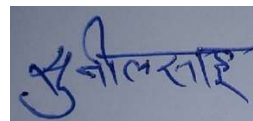 सुनीलसाहू